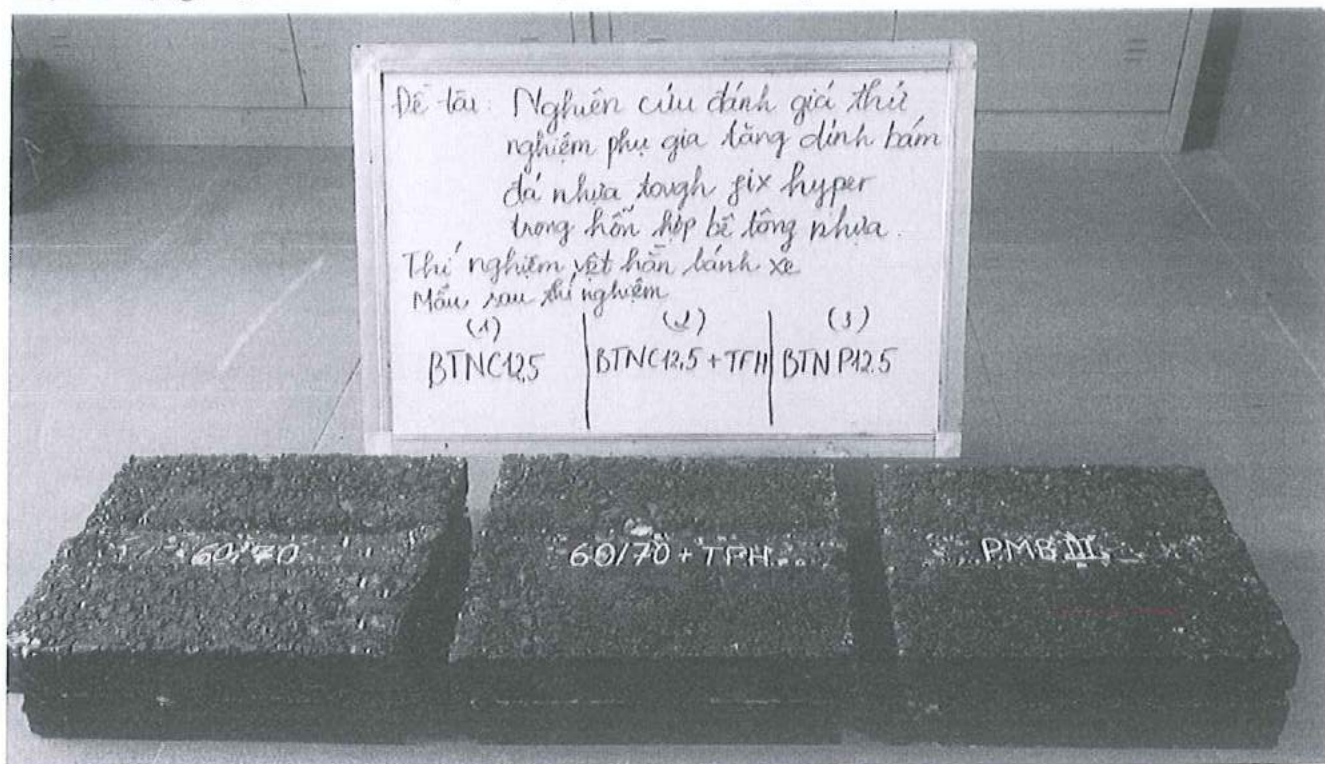 Đề tài: Nghiên cứu đánh giá thử
nghiệm phụ gia tăng dính bám
đá nhựa tough fix hyper
trong hỗn hợp bê tông nhựa.
Thí nghiệm vệt hằn bánh xe
Mẫu sau thí nghiệm
(1) (2) (3)
BTNC12,5 BTNC12,5 + TFH BTNP12.5
60/70 60/70 + TFH PMB III